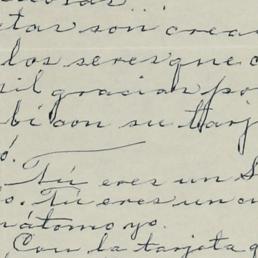 tas son crea
los seres que c
mil gracias po
bi con su tarj
ó.
Tú eres un S
o. Tú eres un
átomo yo.
Con la tarjeta q